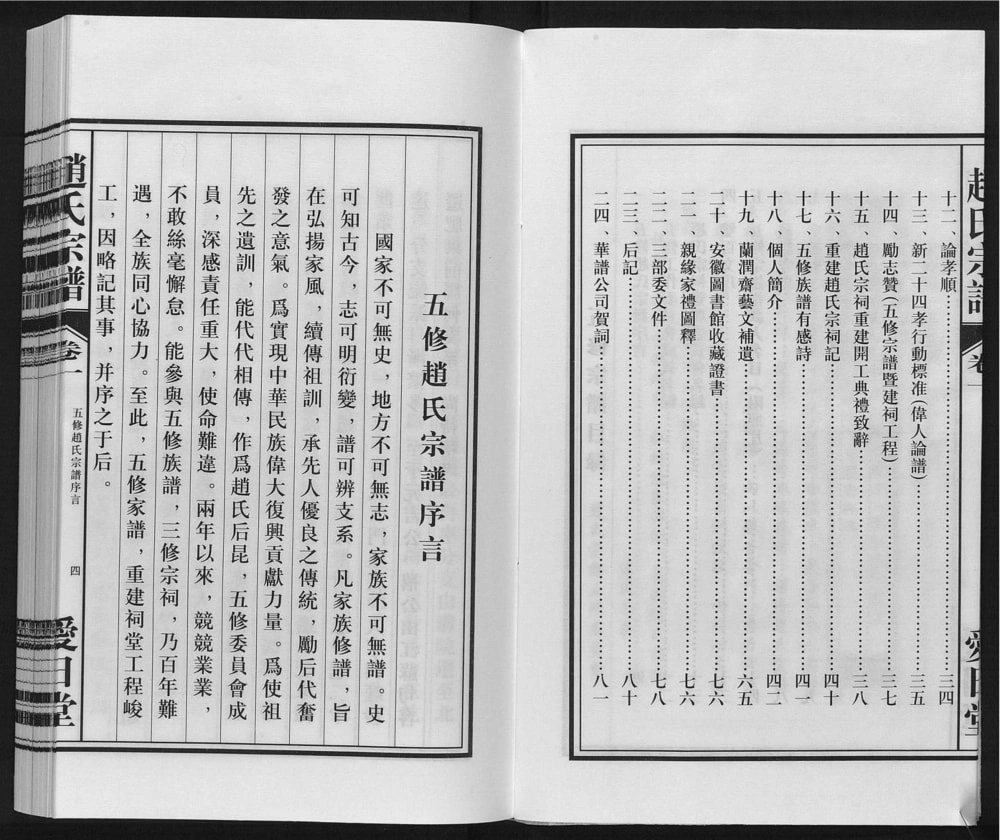 趙氏宗譜
卷一
愛日堂
十二、論孝順……三四
十三、新二十四孝行動標准(偉人論譜)……三五
十四、勵志贊(五修宗譜暨建祠工程)……三七
十五、趙氏宗祠重建開工典禮致辭……三八
十六、重建趙氏宗祠記……四十
十七、五修族譜有感詩……四一
十八、個人簡介……四二
十九、蘭潤齋藝文補遺……六五
二十、安徽圖書館收藏證書……七六
二一、親緣家禮圖釋……七六
二二、三部委文件……七八
二三、后記……八十
二四、華譜公司賀詞……八一
五修趙氏宗譜序言
國家不可無史，地方不可無志，家族不可無譜。史
可知古今，志可明衍變，譜可辨支系。凡家族修譜，旨
在弘揚家風，續傳祖訓，承先人優良之傳統，勵后代奮
發之意氣。爲實現中華民族偉大復興貢獻力量。爲使祖
先之遺訓，能代代相傳，作爲趙氏后昆，五修委員會成
員，深感責任重大，使命難違。兩年以來，競競業業，
不敢絲毫懈怠。能參與五修族譜，三修宗祠，乃百年難
遇，全族同心協力。至此，五修家譜，重建祠堂工程峻
工，因略記其事，并序之于后。
趙氏宗譜
卷一
五修趙氏宗譜序言
四
愛日堂